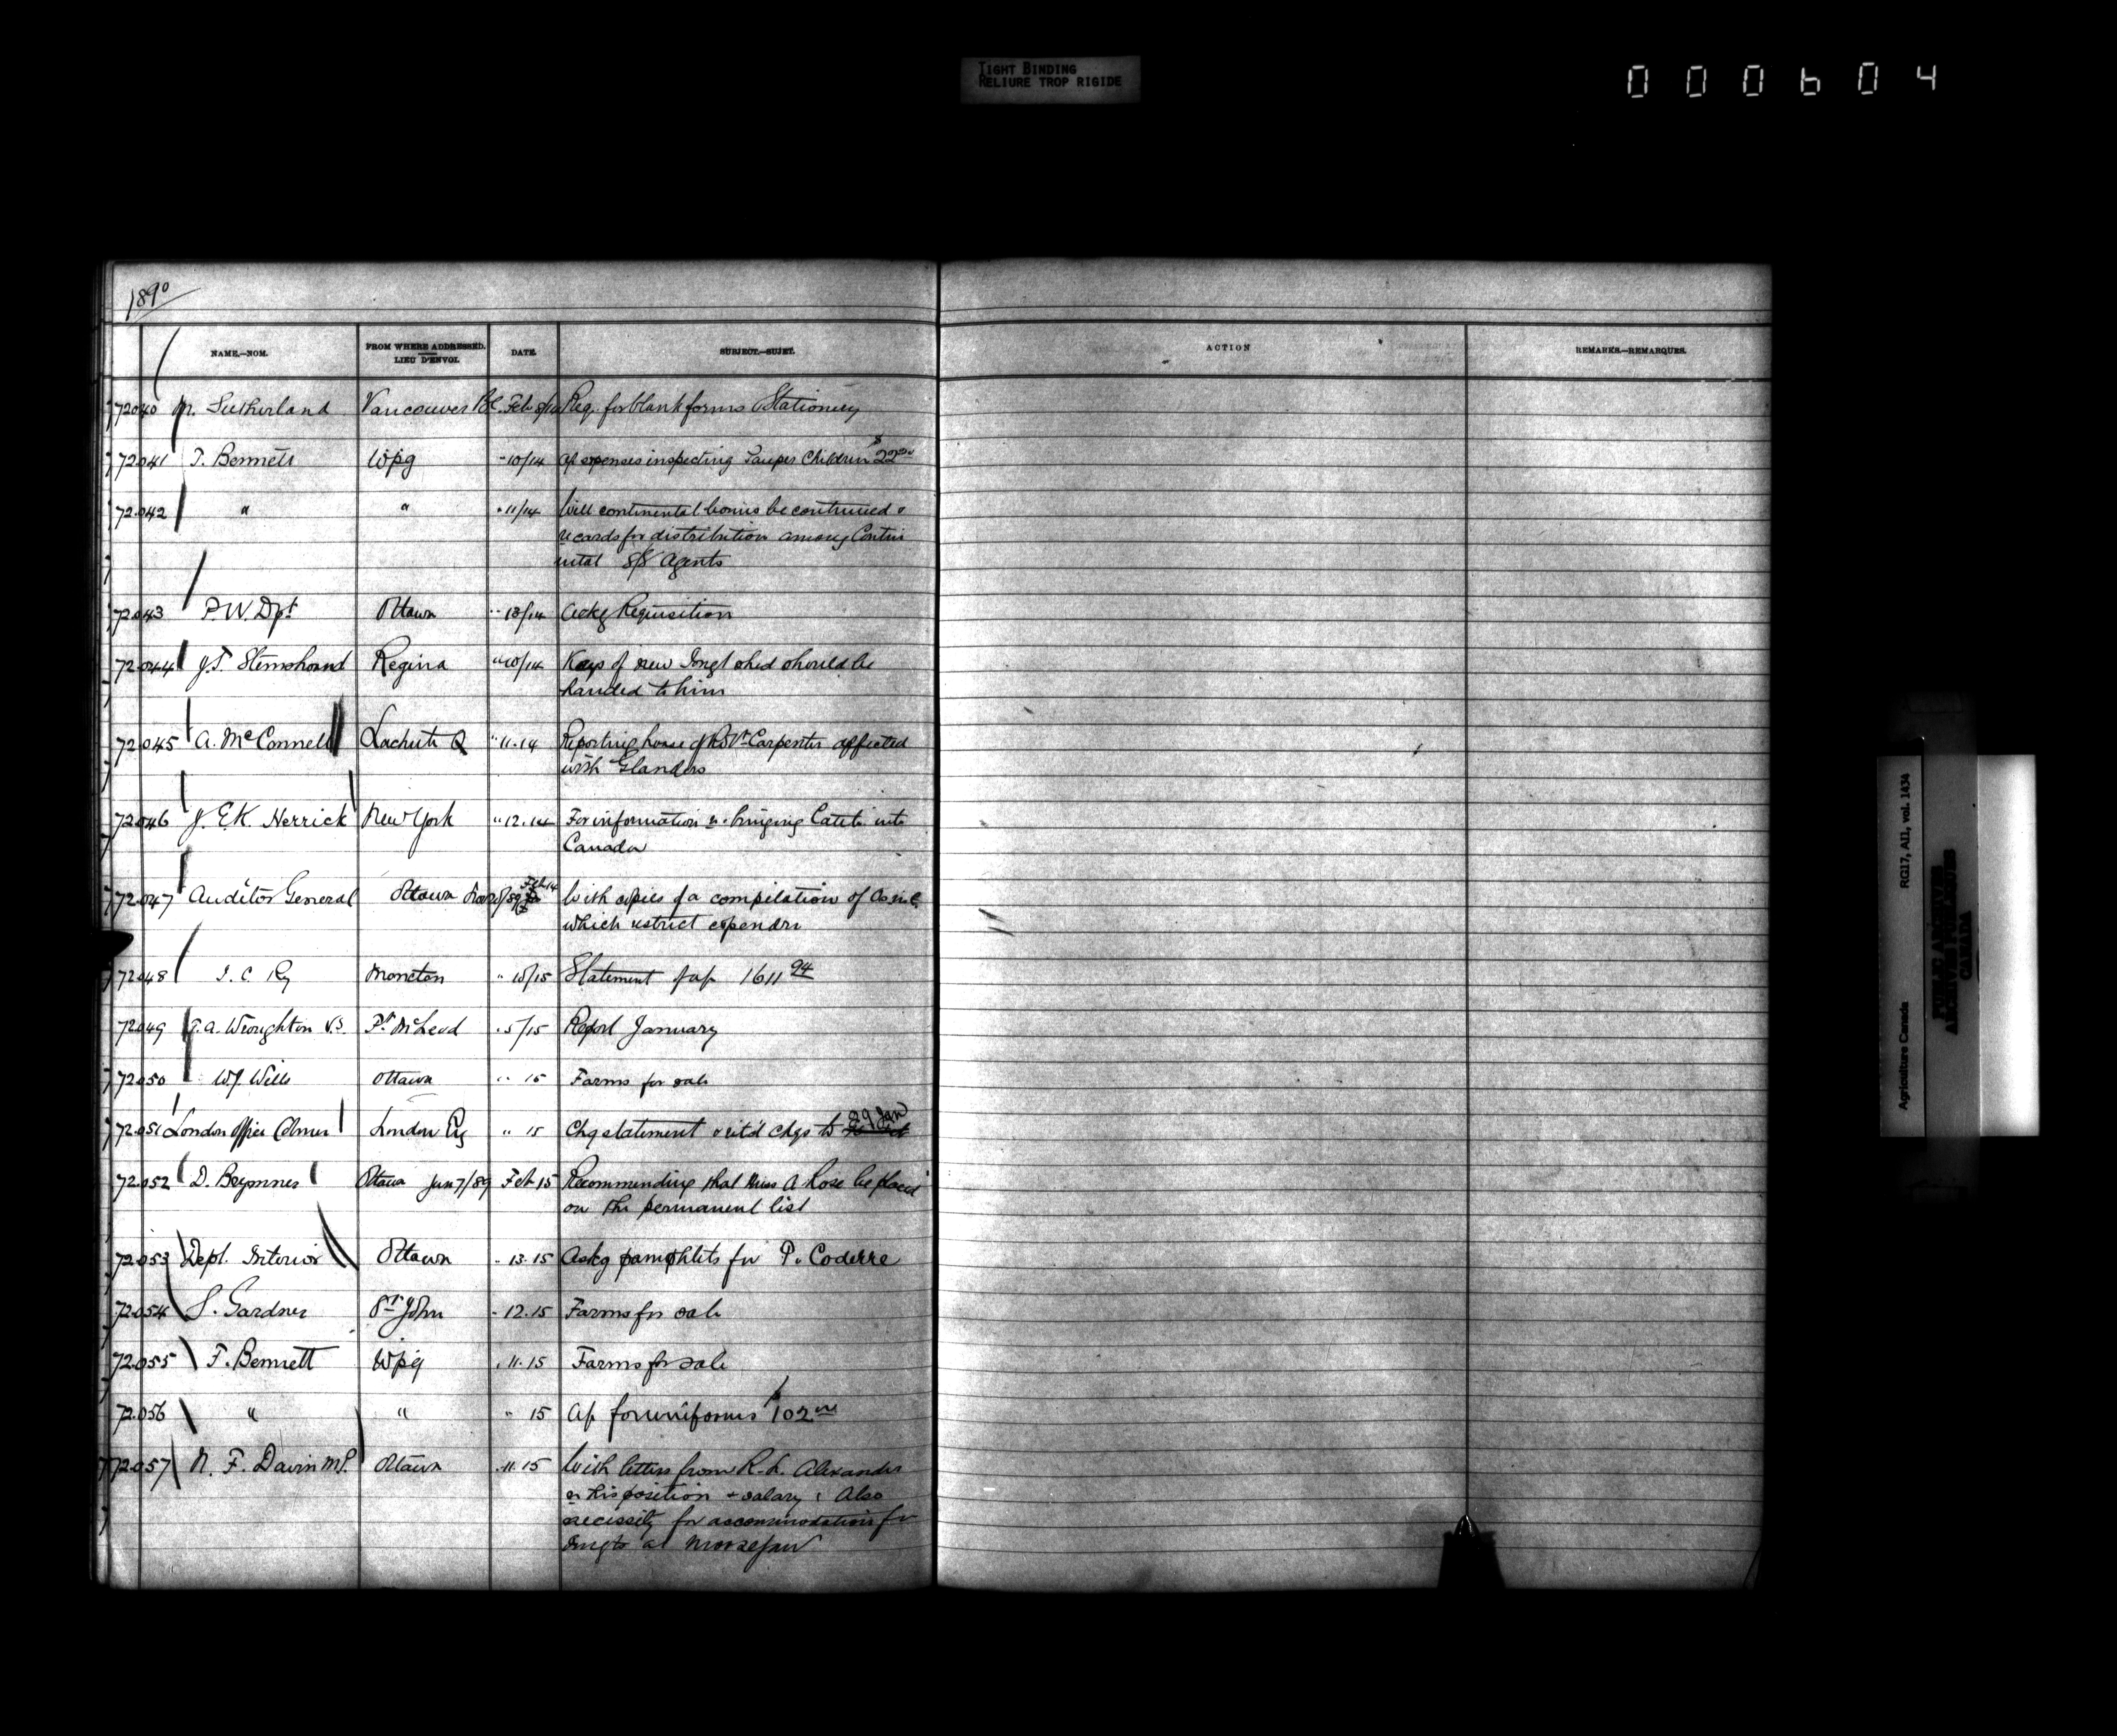 TIGHT BINDING
RELIURE TROP RIGIDE
000604
1890
NAME.—NOM. FROM WHERE ADDRESSED. LIEU D'ENVOI. DATE. SUBJECT.—SUJET. ACTION REMARKS.—REMARQUES.
72040 Sutherland Vancouver BC. Feb 8/14 Req. for blank forms & Stationery
72041 T. Bennett Wpg " 10/14 a/c expenses inspecting Pauper Children $22
72042 " " " 11/14 Will continental bonus be continued &
re cards for distribution among Contin
ental S/S Agents
72043 P.W. Dpt Ottawa " 13/14 Ackg Requisition
72044 J.T. Stemshorn Regina " 10/14 Keys of new Imgt shed should be
handed to him
72045 A. McConnell Lachute Q " 11.14 Reporting horse of Carpenter affected
with Glanders
72046 J. E.K. Herrick New York " 12.14 For information re bringing Cattle into
Canada
72047 Auditor General Ottawa Feb 14 With copies of a compilation of
which restrict expendre
72048 I. C. Ry Moncton " 10/15 Statement of a/c 1611 94
72049 T.A. Wroughton V.S. Ft McLeod " 5/15 Report January
72050 W.J. Wills Ottawa " 15 Farms for sale
72051 London Office Colmer London Eng " 15 Chq statement & ret'd chqs to 29 Jan
72052 D. Brymner Ottawa Jun 7/89 Feb 15 Recommending that Miss A Rose be placed
on the permanent list
72053 Dept. Interior Ottawa " 13.15 Askg pamphlets for P. Coderre
72054 S. Gardner St John " 12.15 Farms for sale
72055 F. Bennett Wpg " 11.15 Farms for sale
72056 " " " 15 a/c for uniforms $102
72057 N. F. Davin M.P. Ottawa " 11.15 With letters from R. L. Alexander
re his position & salary; Also
necessity for accommodation for
Imgts at Moosejaw
Agriculture Canada RG17, AI1, vol. 1434
PUBLIC ARCHIVES
ARCHIVES PUBLIQUES
CANADA